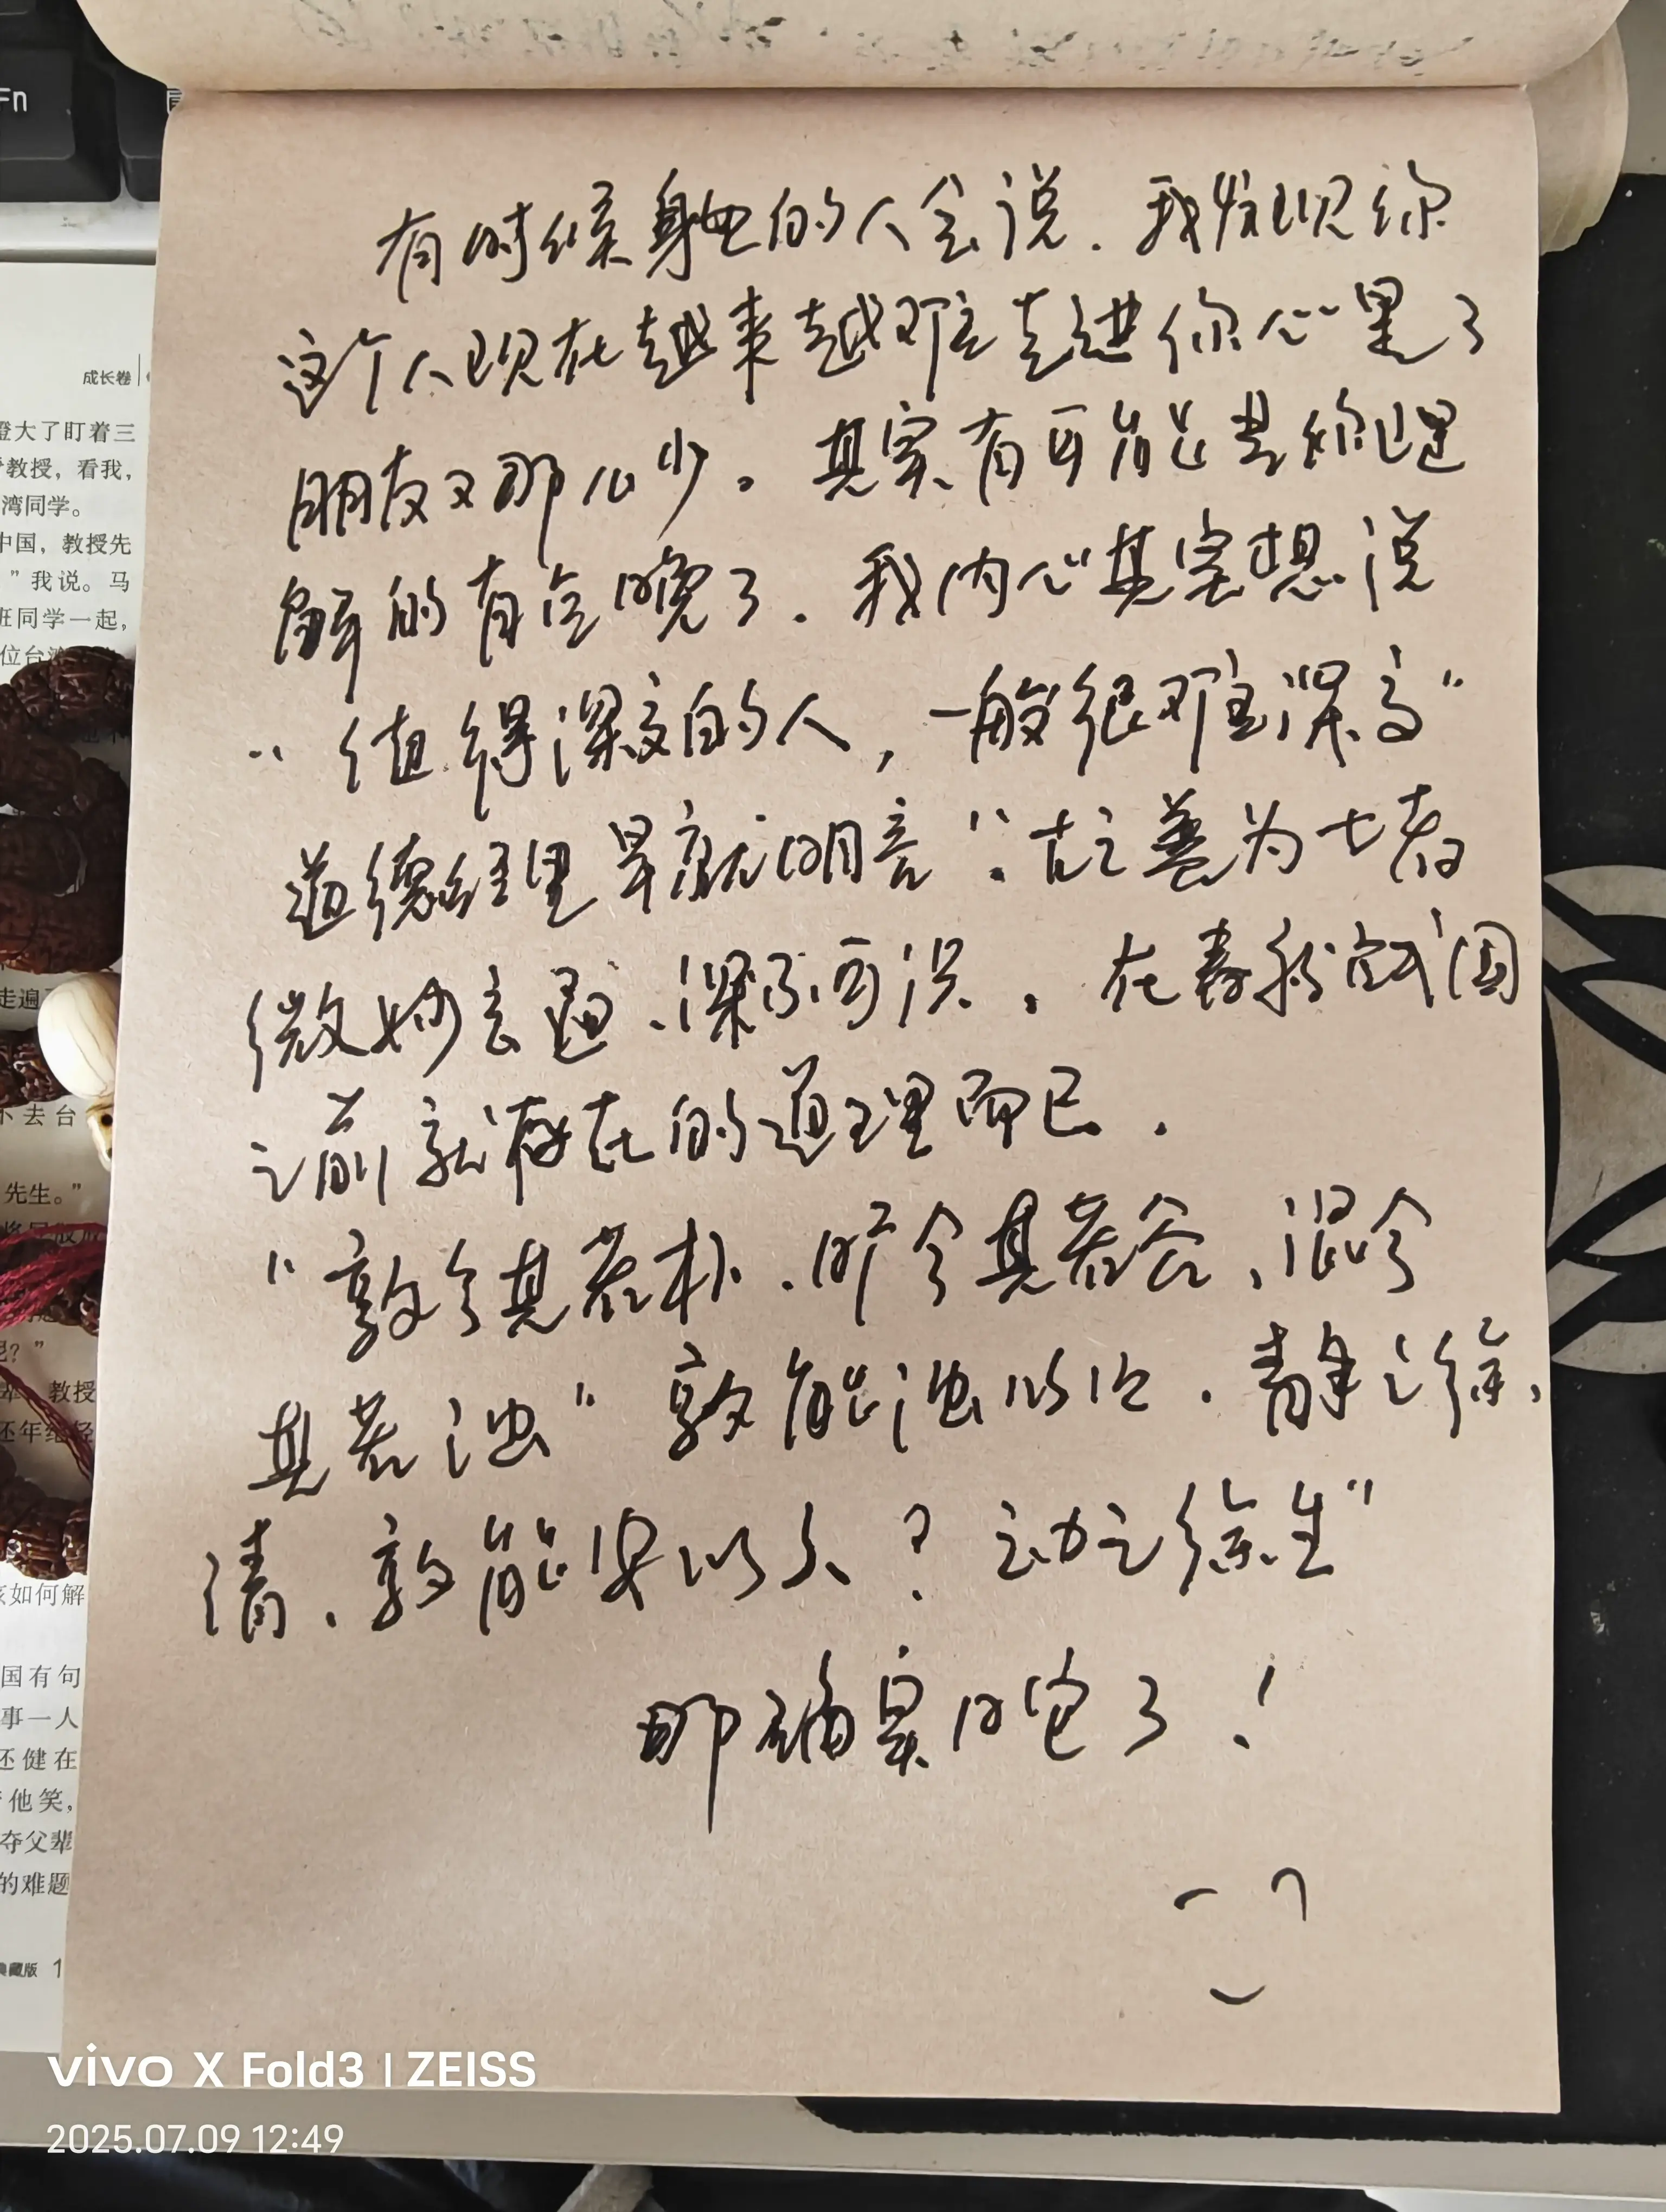 Fn
成长卷
登大了盯着三
教授，看我，
湾同学。
中国，教授先
”我说。马
班同学一起，
位台湾
走遍
不去台
先生。”
呢？”
教授
还年纪轻
该如何解
国有句
事一人
还健在
他笑，
夺父辈
的难题
典藏版 1
有时候身边的人会说．我发现你
这个人现在越来越难走进你心里了
朋友又那么少。其实有可能是你理
解的有点晚了．我内心其实想说
“值得深交的人，一般很难深交”
道德经里早就明言“：古之善为士者
微妙玄通、深不可识．在春秋战国
之前就存在的道理而已．
“敦兮其若朴．旷兮其若谷、混兮
其若浊”敦能浊以止．静之徐、
清．敦能安以久？之动之徐生”
那确实晚了！
vivo X Fold3 | ZEISS
2025.07.09 12:49